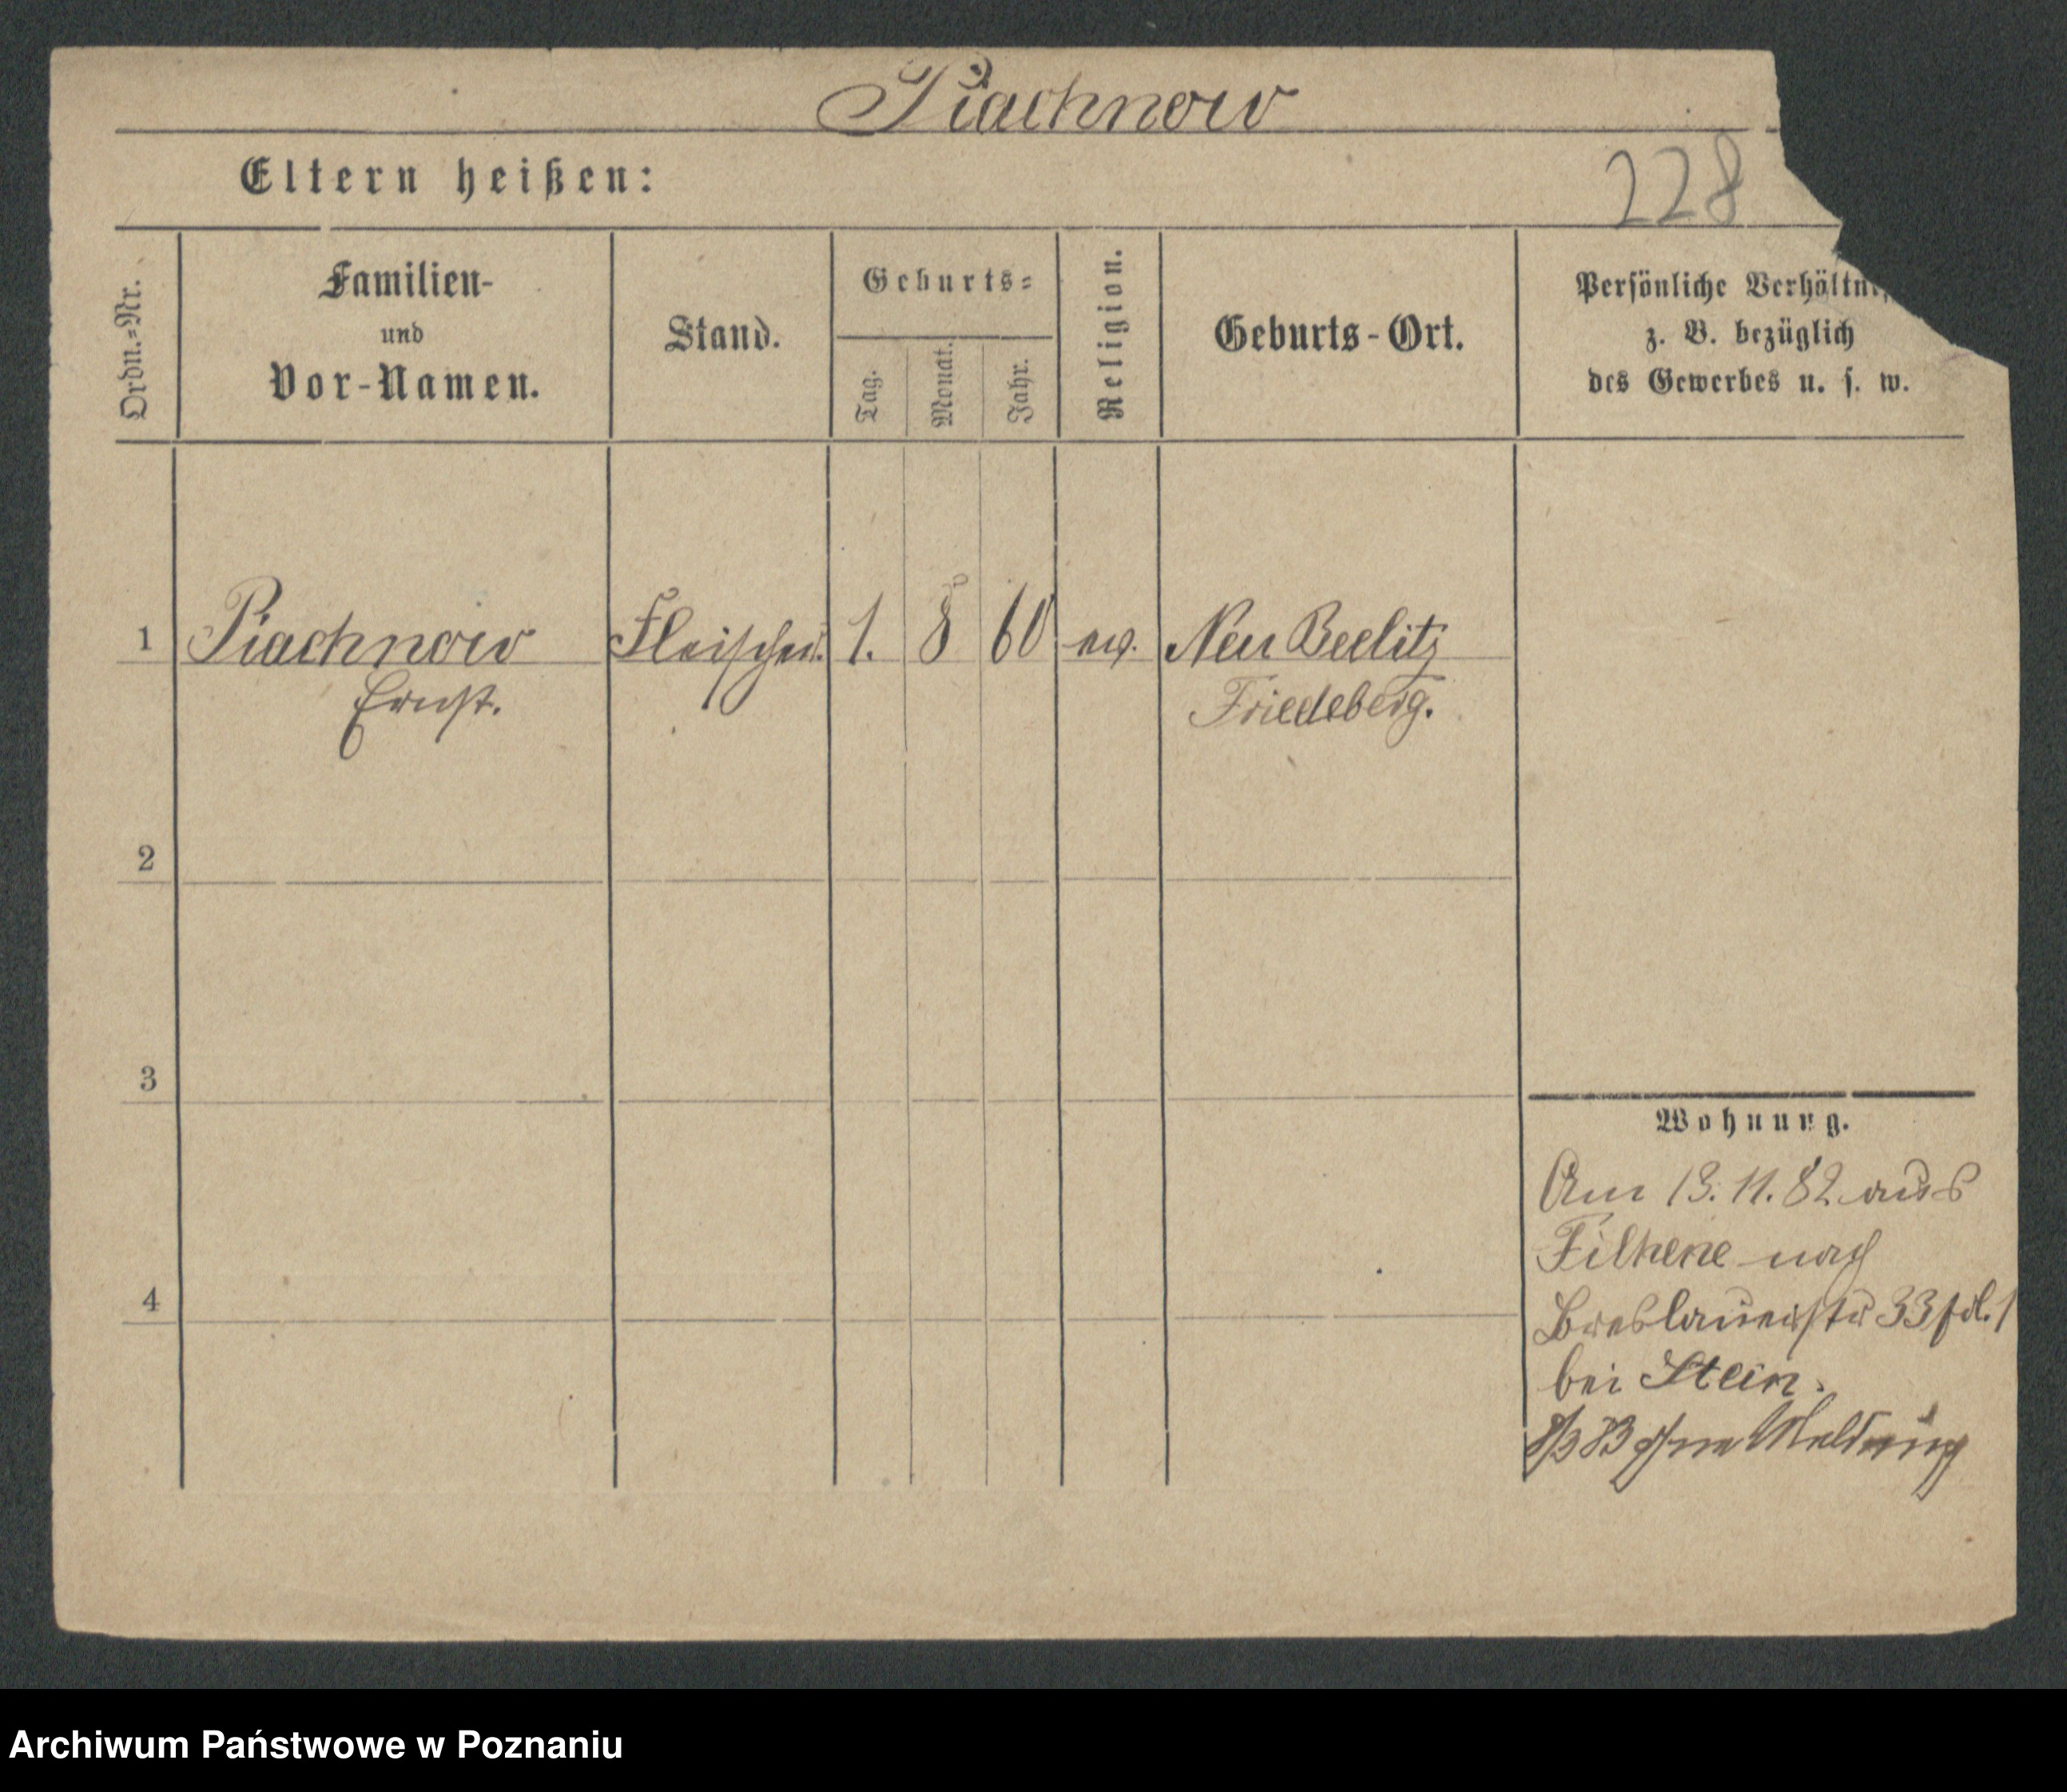 Piachnow
Eltern heißen:
228
Ordn.-Nr.
Familien-
und
Vor-Namen.
Stand.
Geburts-
Tag.
Monat.
Jahr.
Religion.
Geburts-Ort.
Persönliche Verhältnis
z. B. bezüglich
des Gewerbes u. s. w.
1 Piachnow Fleischer. 1. 8 60 ev. Neu Beelitz
Ernst. Friedeberg.
2
3
4
Wohnung.
Am 13. 11. 82 aus
Filhene nach
Breslauerstr 33
bei Stein.
8/3 83 ohne Meldung
Archiwum Państwowe w Poznaniu